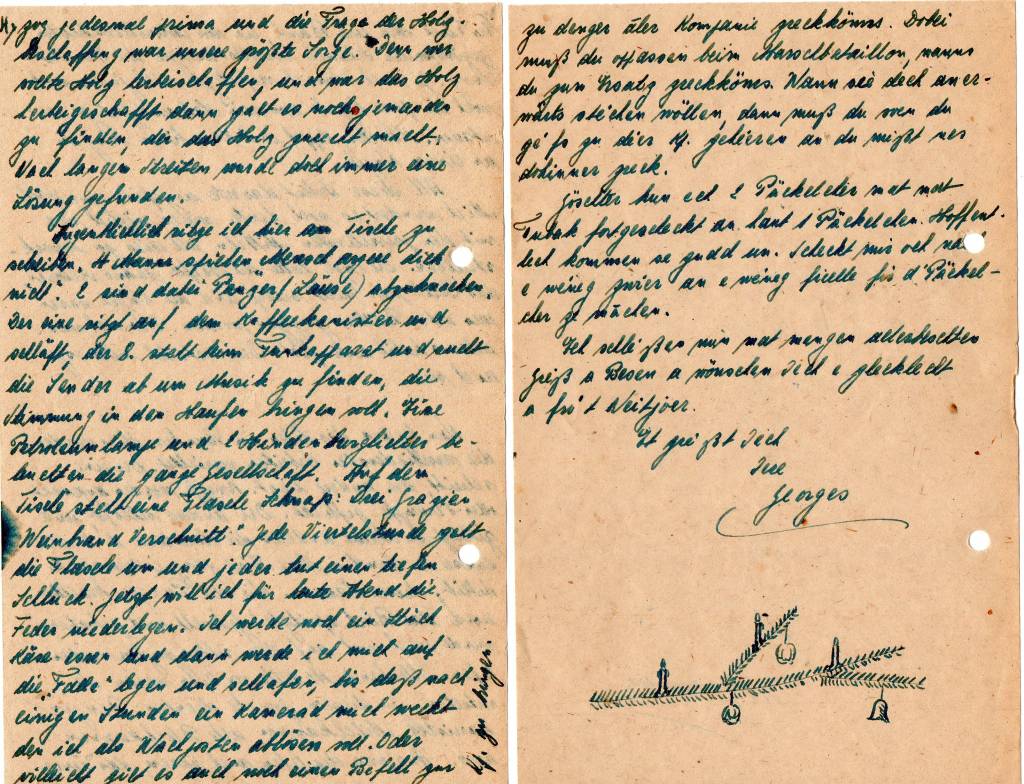 zog jedesmal prima und die Frage der Holz-
Beschaffung war unsere größte Sorge. Denn wer
wollte Holz herbeischaffen, und war das Holz
herbeigeschafft dann galt es noch jemanden
zu finden, der das Holz zurecht macht.
Nach langem Streiten wurde doch immer eine
Lösung gefunden.
Augenblicklich sitze ich hier am Tische zu
schreiben. 4 Mann spielen „Mensch ärgere dich
nicht". 2 sind dabei Panzer (Läuse) abzuknacken.
Der eine sitzt auf dem Kaffeekanister und
schläft, der 8. steht beim Funkapparat und sucht
die Sender ab um Musik zu finden, die
Stimmung in den Haufen bringen soll. Eine
Petroleumlampe und 2 Hindenburglichter be-
leuchten die ganze Gesellschaft. Auf dem
Tische steht eine Flasche Schnaps: „Drei Grazien
Weinbrand Verschnitt". Jede Viertelstunde geht
die Flasche um und jeder tut einen tiefen
Schluck. Jetzt will ich für heute Abend die
Feder niederlegen. Ich werde noch ein Stück
Käse essen und dann werde ich mich auf
die legen und schlafen, bis daß nach
einigen Stunden ein Kamerad mich weckt
den ich als Wachposten ablösen soll. Oder
vielleicht gibt es auch noch einen Befehl zur
Kp. zu bringen.
zu denger aler Kompanie zreckkönns. Dobei
muß du opassen beim Marschbataillon, wanns
du zum Ersatz zreckkönns. Wann sie dech aner-
wärts stiechen wöllen, dann muß du soen du
gé fs zu dier Kp. gehieren an du mißt nes
dohinner zreck.
Göschter hun ech 2 Päckelcher mat
Tubak fortgescheckt an haut 1 Päckelchen. Hoffent-
lech kommen se gudd un. Scheckt mir och
e wéineg an e wéineg fir d'Päckel-
cher ze maachen.
Ech schléißen mat mengen allerbeschten
Gréiß a Besen a wönschen Iech e glecklecht
a fri't Neitjoer.
Et gréißt Iech
Iere
Georges